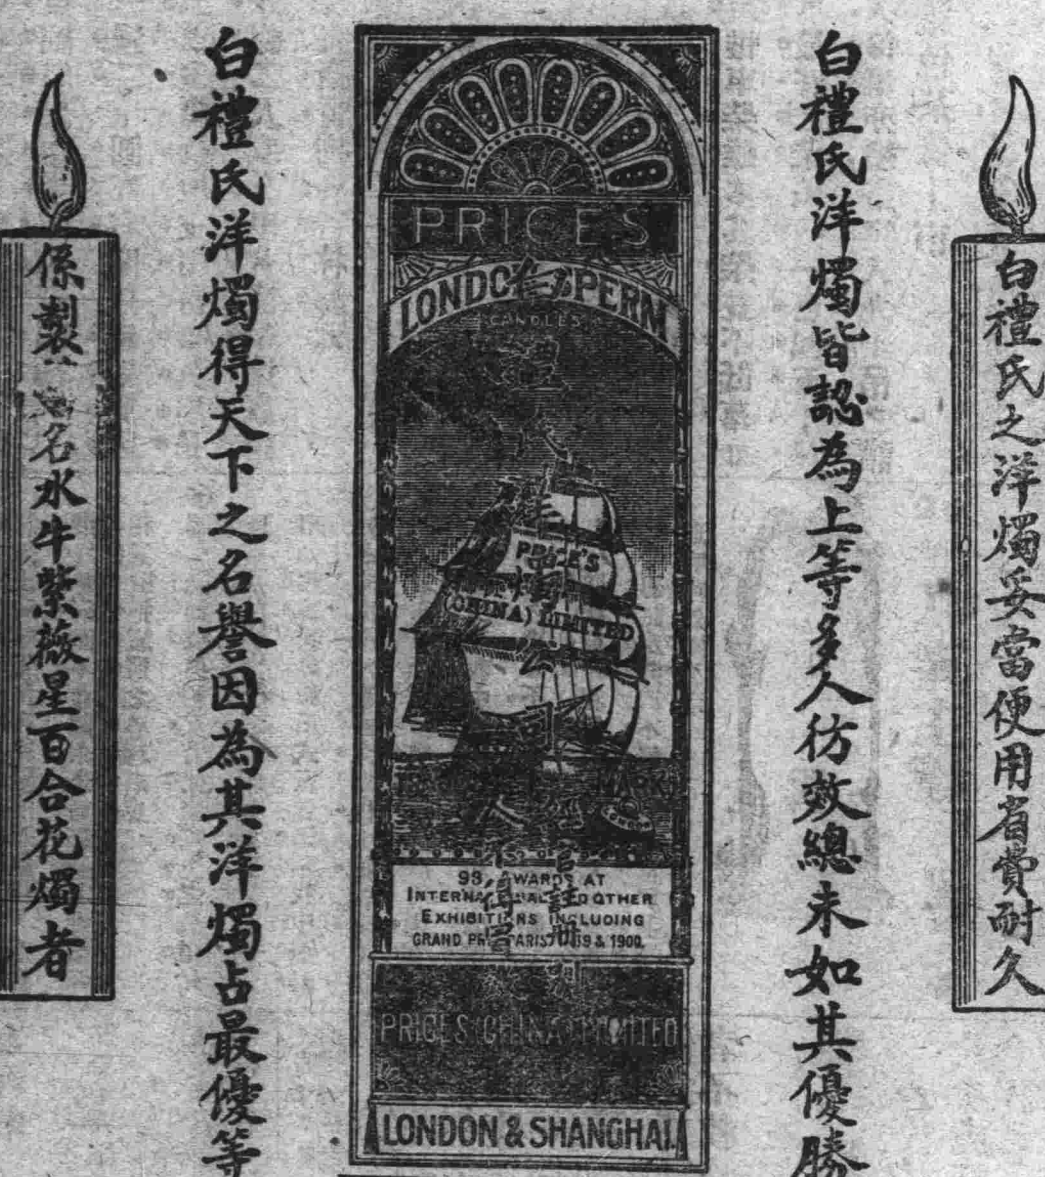 白禮氏之洋燭妥當便用省費耐久
白禮氏洋燭皆認為上等多人彷效總未如其優勝
PRICES
LONDON SPERM
CANDLES
PRICE'S
(CHINA) LIMITED
MARK
LONDON
93 AWARDS AT
INTERNATIONAL AND OTHER
EXHIBITIONS INCLUDING
GRAND PRIX PARIS 1889 & 1900.
PRICES (CHINA) LIMITED
LONDON & SHANGHAI.
白禮氏洋燭得天下之名譽因為其洋燭占最優等
係製
名水牛紫薇星百合花燭者